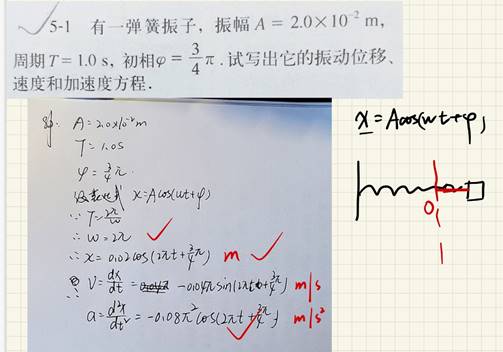 5-1 有一弹簧振子，振幅 A = 2.0×10⁻² m，
周期 T = 1.0 s，初相φ = 3/4 π．试写出它的振动位移、
速度和加速度方程．
解: A = 2.0×10⁻²m
T = 1.0s
φ = 3/4 π.
x = Acos(ωt+φ)
∵ T = 2π/ω
∴ ω = 2π
∴ x = 0.02cos(2πt + 3/4π) m
v = dx/dt = -0.04π sin(2πt + 3π/4) m/s
a = d²x/dt² = -0.08π² cos(2πt + 3π/4) m/s²
x = Acos(ωt+φ)
0